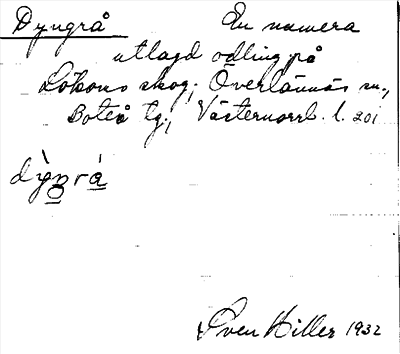 Dyngrå En numera
utlagd odling på
Lökoms skog; Överlännäs sn.,
Boteå tg; Västernorrl. l. 201
dy̍ŋrá
Sven Hiller 1932